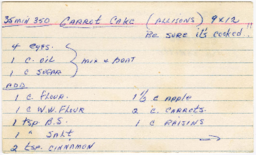 35 MIN 350 CARROT CAKE (ALLISONS) 9X12
BE SURE it's cooked
4 eggs
1 C. OIL
MIX & BEAT
1 C SUGAR
ADD
1 C FLOUR.
1 C W.W. FLOUR
1 tsp B.S.
1 " SALT
2 tsp. CINNAMON
1 1/2 C APPLE
2 C. CARROTS.
1 C RAISINS